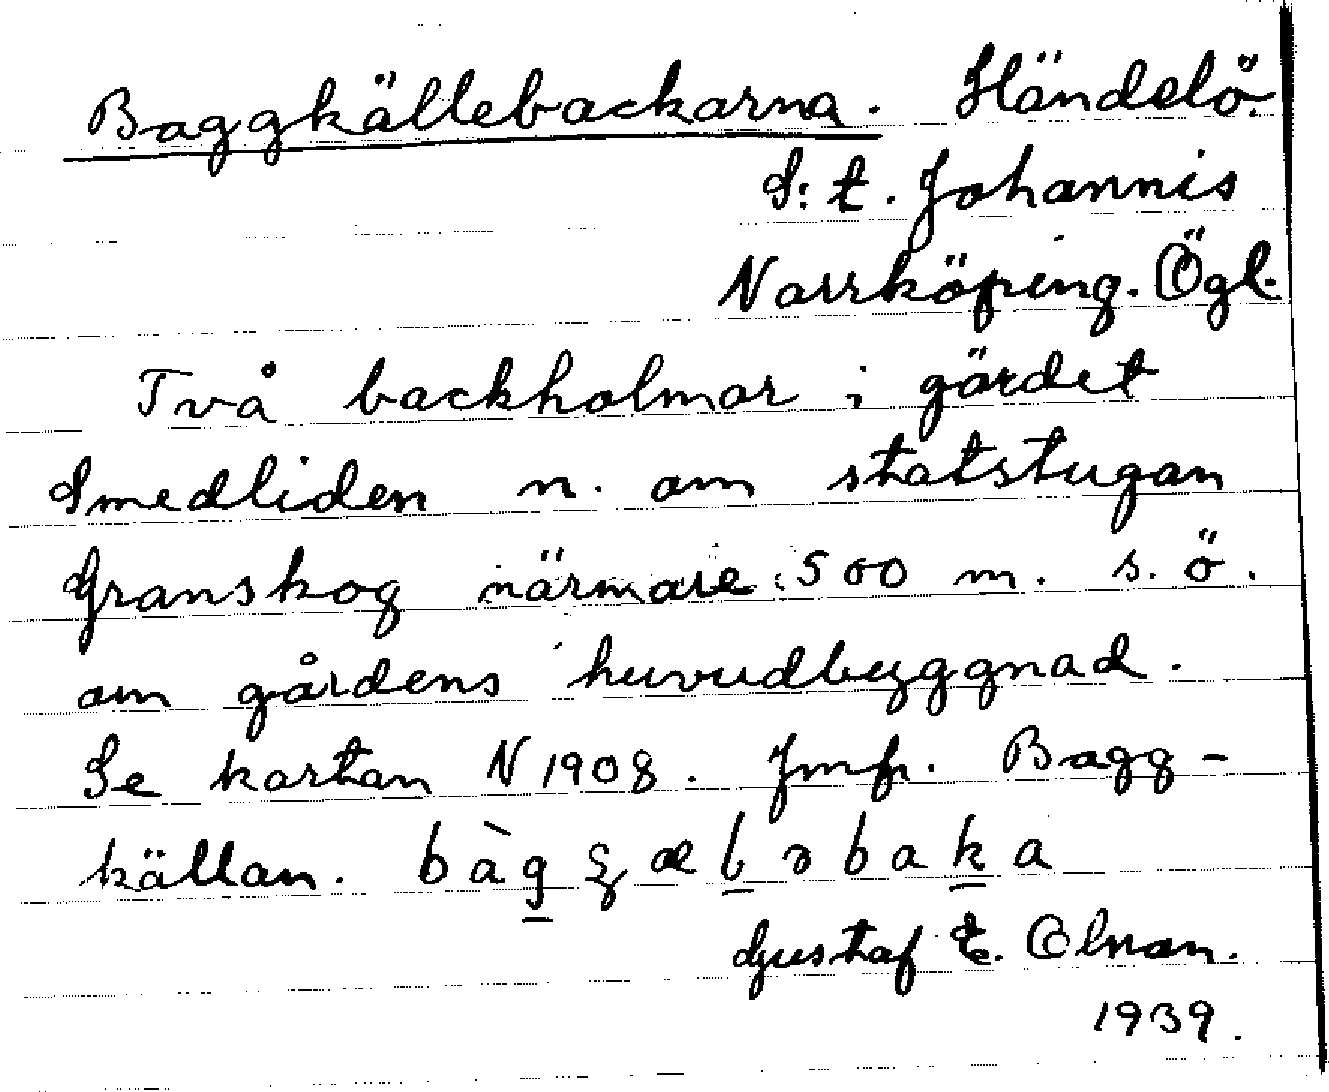 Baggkällebackarna. Händelö.
S:t. Johannis
Norrköping. Ögl.
Två backholmar i gärdet
Smedliden n. om statstugan
Granskog närmare 500 m. s. ö.
om gårdens huvudbyggnad.
Se kartan N 1908. Jmfr. Bagg-
källan.
Gustaf E. Olnon.
1939.